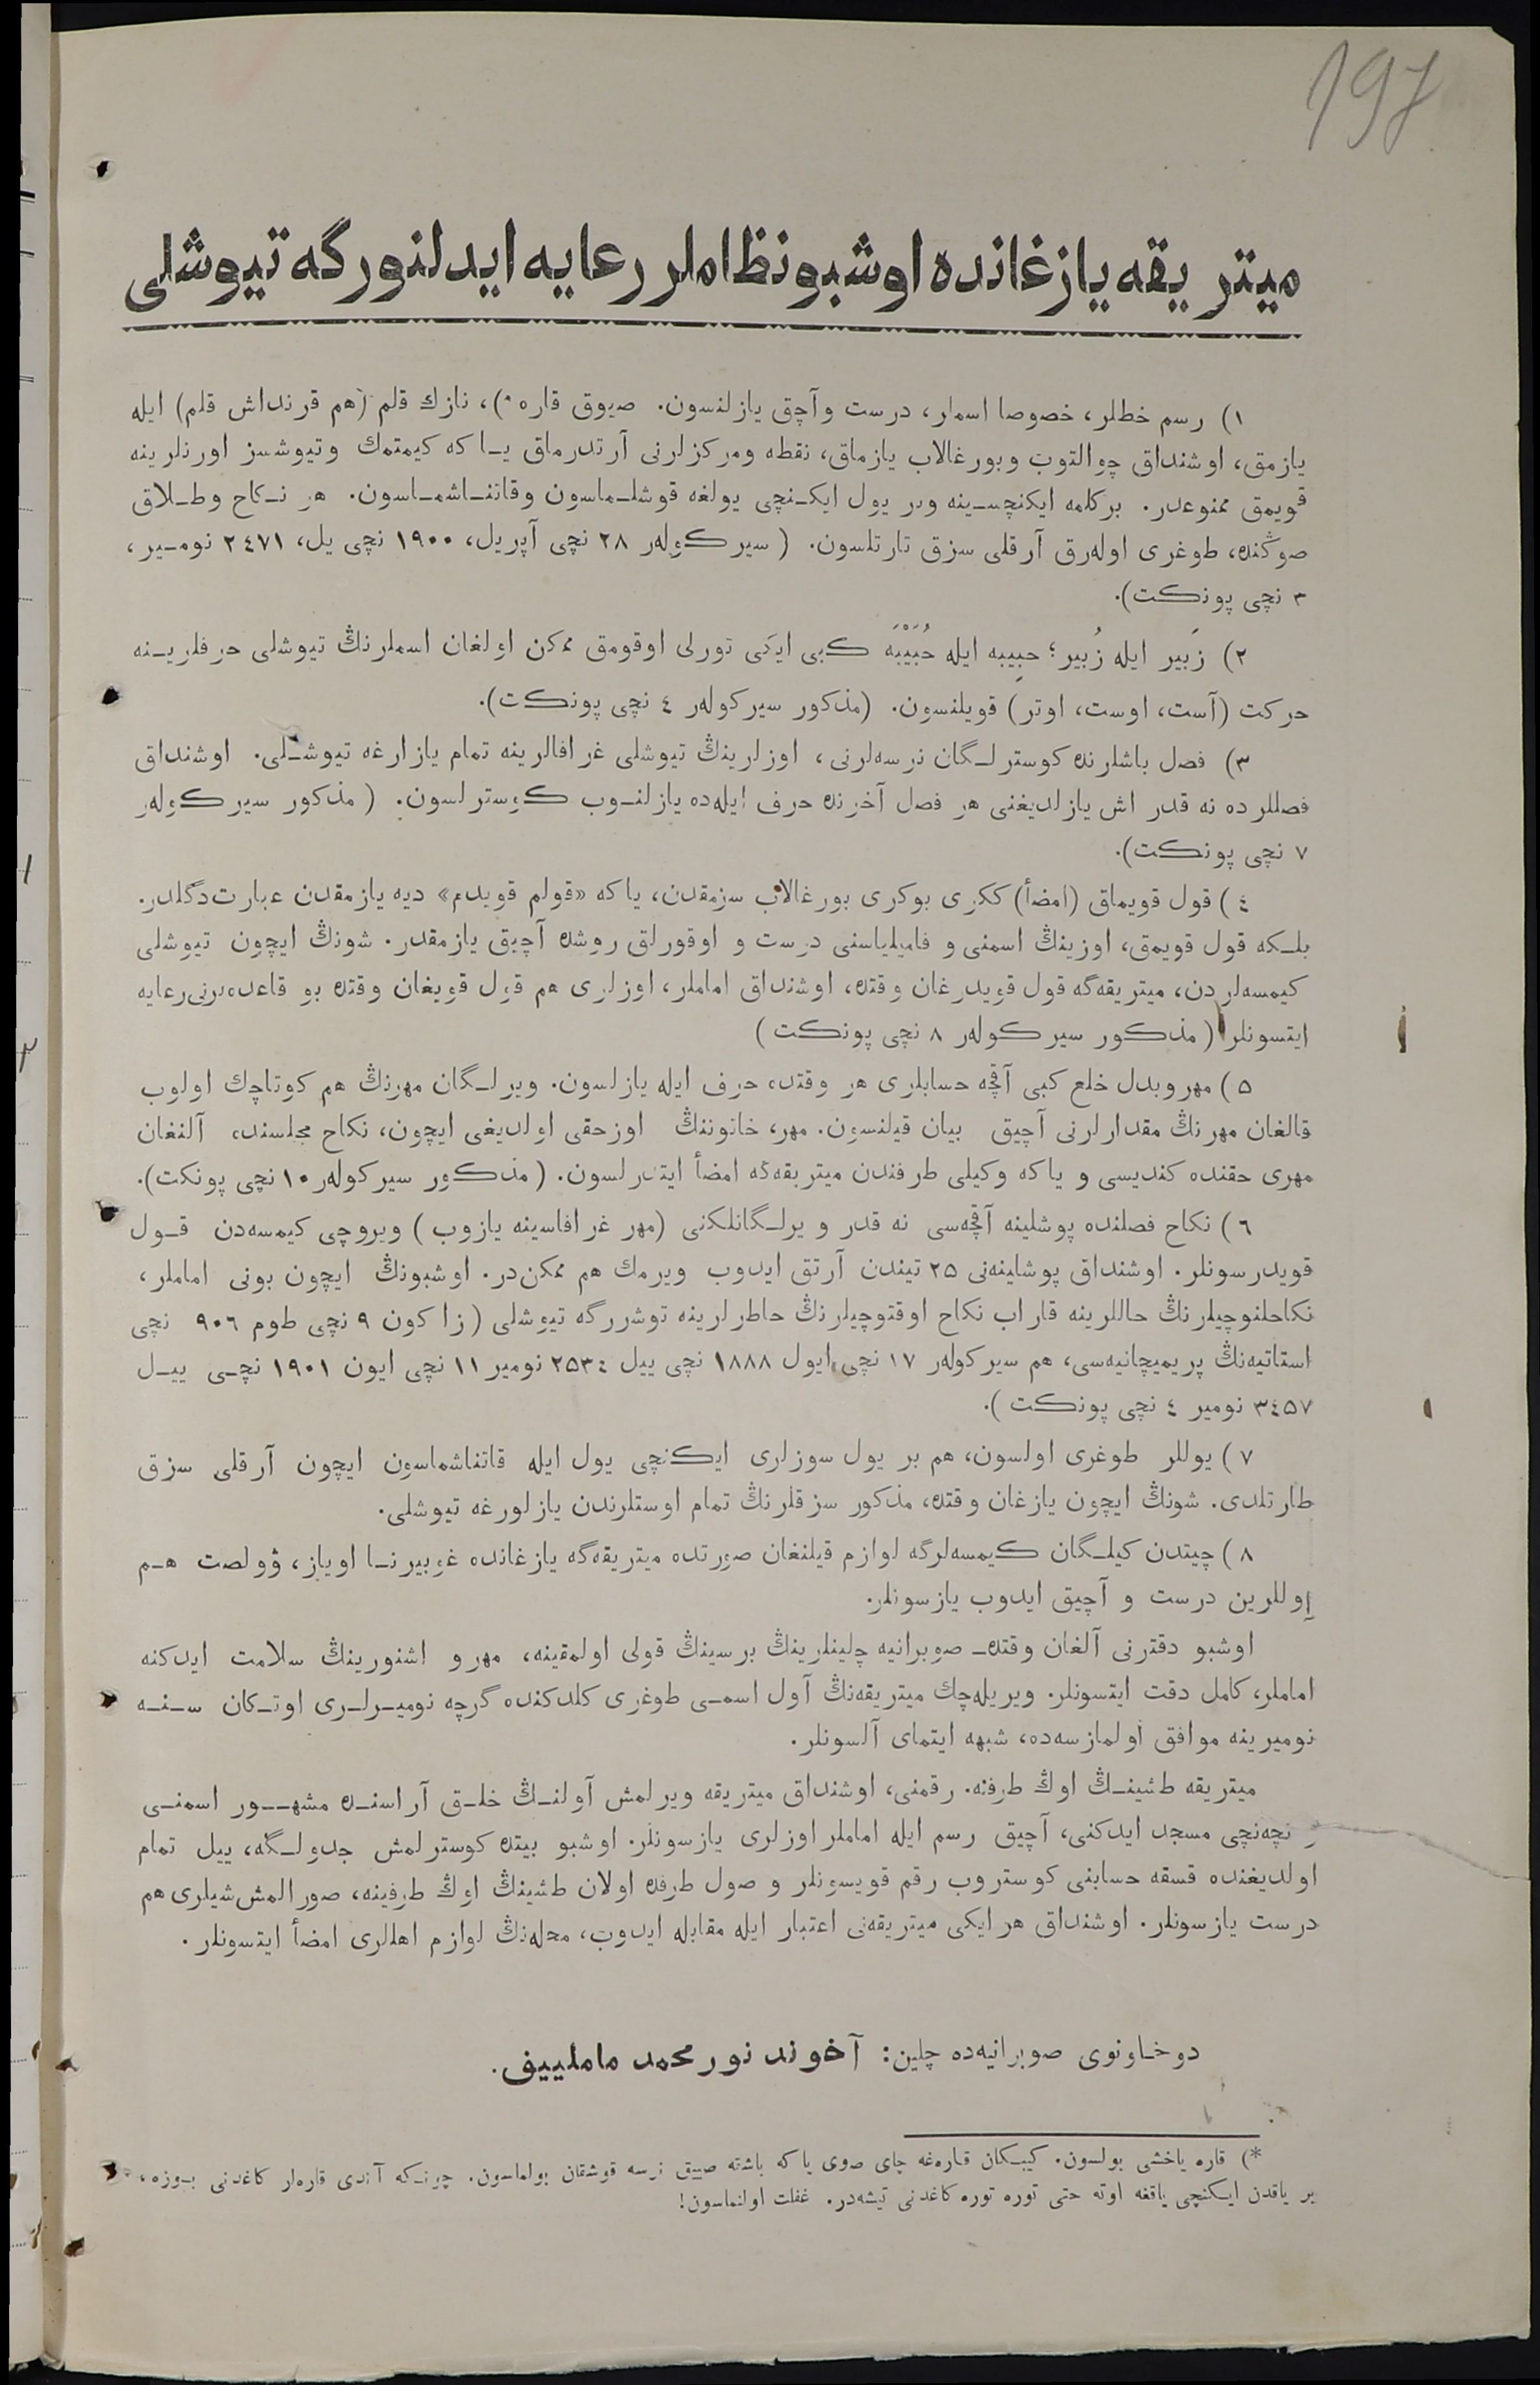 197
ميتريقه يازغانده اوشبو نظاملر رعايه ايدلنورگه تيوشلى
١) رسم خطلر، خصوصا اسملر، درست وآچق يازلنسون. صيوق قاره *)، نازك قلم (هم قرنداش قلم) ايله
يازمق، اوشنداق چوالتوب وبورغالاب يازماق، نقطه ومركزلرنى آرتدرماق يا كه كيمتمك وتيوشسز اورنلرينه
قويمق ممنوعدر. بركلمه ايكنچسينه وبر يول ايكنچى يولغه قوشلماسون وقاتناشماسون. هر نكاح وطلاق
صوڭنده، طوغرى اولهرق آرقلى سزق تارتلسون. (سيركولهر ٢٨ نچى آپريل، ١٩٠٠ نچى يل، ٢٤٧١ نومير،
٣ نچى پونكت).
٢) زَبير ايله زُبير؛ حبِيبه ايله حُبَيْبَه كبى ايكى تورلى اوقومق ممكن اولغان اسملرنڭ تيوشلى حرفلرينه
حركت (آست، اوست، اوتر) قويلنسون. (مذكور سيركولهر ٤ نچى پونكت).
٣) فصل باشلرنده كوسترلگان نرسهلرنى، اوزلرينڭ تيوشلى غرافالرينه تمام يازارغه تيوشلى. اوشنداق
فصللرده نه قدر اش يازلديغنى هر فصل آخرنده حرف ايلهده يازلنوب كوسترلسون. (مذكور سيركولهر
٧ نچى پونكت).
٤) قول قويماق (امضأ) ككرى بوكرى بورغالاب سزمقدن، ياكه «قولم قويدم» ديه يازمقدن عبارت دگلدر.
بلكه قول قويمق، اوزينڭ اسمنى و فاميلياسنى درست و اوقورلق روشده آچيق يازمقدر. شونڭ ايچون تيوشلى
كيمسهلردن، ميتريقهگه قول قويدرغان وقتده، اوشنداق اماملر، اوزلرى هم قول قويغان وقتده بو قاعدهلرنى رعايه
ايتسونلر (مذكور سيركولهر ٨ نچى پونكت)
٥) مهر وبدل خلع كبى آقچه حسابلرى هر وقتده حرف ايله يازلسون. ويرلگان مهرنڭ هم كوتاچك اولوب
قالغان مهرنڭ مقدارلرنى آچيق بيان قيلنسون. مهر، خاتوننڭ اوزحقى اولديغى ايچون، نكاح مجلسنده آلنغان
مهرى حقنده كنديسى و ياكه وكيلى طرفندن ميتريقهگه امضأ ايتدرلسون. (مذكور سيركولهر ١٠ نچى پونكت).
٦) نكاح فصلنده پوشلينه آقچهسى نه قدر و يرلگانلكنى (مهر غرافاسينه يازوب) ويروچى كيمسهدن قول
قويدرسونلر. اوشنداق پوشلينهنى ٢٥ تيندن آرتق ايدوب ويرمك هم ممكن در. اوشبونڭ ايچون بونى اماملر،
نكاحلنوچيلرنڭ حاللرينه قاراب نكاح اوقتوچيلرنڭ خاطرلرينه توشررگه تيوشلى (زاكون ٩ نچى طوم ٩٠٦ نچى
استاتيهنڭ پريميچانيهسى، هم سيركولهر ١٧ نچى ايول ١٨٨٨ نچى ييل ٢٥٣٤ نومير ١١ نچى ايون ١٩٠١ نچى ييل
٣٤٥٧ نومير ٤ نچى پونكت).
٧) يوللر طوغرى اولسون، هم بر يول سوزلرى ايكنچى يول ايله قاتناشماسون ايچون آرقلى سزق
طارتلدى. شونڭ ايچون يازغان وقتده، مذكور سزقلرنڭ تمام اوستلرندن يازلورغه تيوشلى.
٨) چيتدن كيلگان كيمسهلرگه لوازم قيلنغان صورتده ميتريقهگه يازغانده غوبيرنا اوياز، ۋولصت هم
آوللرين درست و آچيق ايدوب يازسونلر.
اوشبو دفترنى آلغان وقتده صوبرانيه چلينلرينڭ برسينڭ قولى اولمقينه، مهر و اشنورينڭ سلامت ايدكنه
اماملر، كامل دقت ايتسونلر. ويريلهچك ميتريقهنڭ آول اسمى طوغرى كلدكنده گرچه نوميرلرى اوتكان سنه
نوميرينه موافق اولمازسهده، شبهه ايتماى آلسونلر.
ميتريقه طشينڭ اوڭ طرفنه رقمنى، اوشنداق ميتريقه ويرلمش آولنڭ خلق آراسنده مشهور اسمنى
و نچهنچى مسجد ايدكنى، آچيق رسم ايله اماملر اوزلرى يازسونلر. اوشبو بيتده كوسترلمش جدولگه، ييل تمام
اولديغنده قسقه حسابنى كوستروب رقم قويسونلر و صول طرفده اولان طشينڭ اوڭ طرفينه، صورالمش شيلرى هم
درست يازسونلر. اوشنداق هر ايكى ميتريقهنى اعتبار ايله مقابله ايدوب، محلهنڭ لوازم اهللرى امضأ ايتسونلر.
دوخاونوى صوبرانيهده چلين: آخوند نورمحمد ماملييف.
*) قاره ياخشى بولسون. كيبكان قارهغه چاى صوى ياكه باشقه صييق نرسه قوشقان بولماسون. چونكه آندى قارهلر كاغدنى بوزه،
بر ياقدن ايكنچى ياقغه اوته حتى توره توره كاغدنى تيشهدر. غفلت اولنماسون!